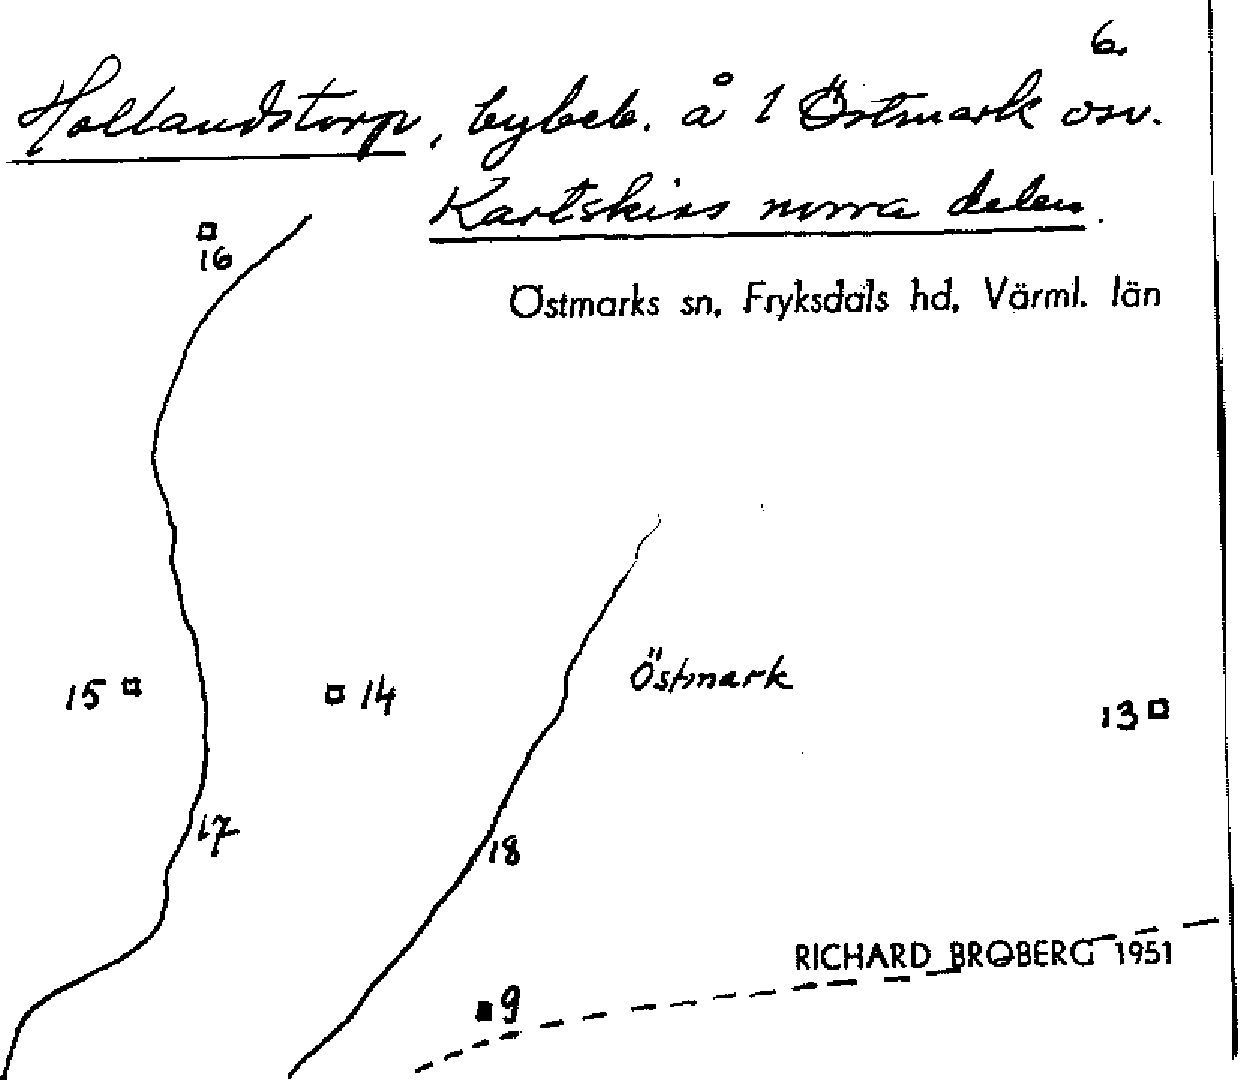 6.
Hollandstorp, bybeb. å 1 Östmark osv.
Kartskiss norra delen.
Östmarks sn, Fryksdals hd, Värml. län
16
Östmark
15
14
13
17
18
RICHARD BROBERG 1951
9